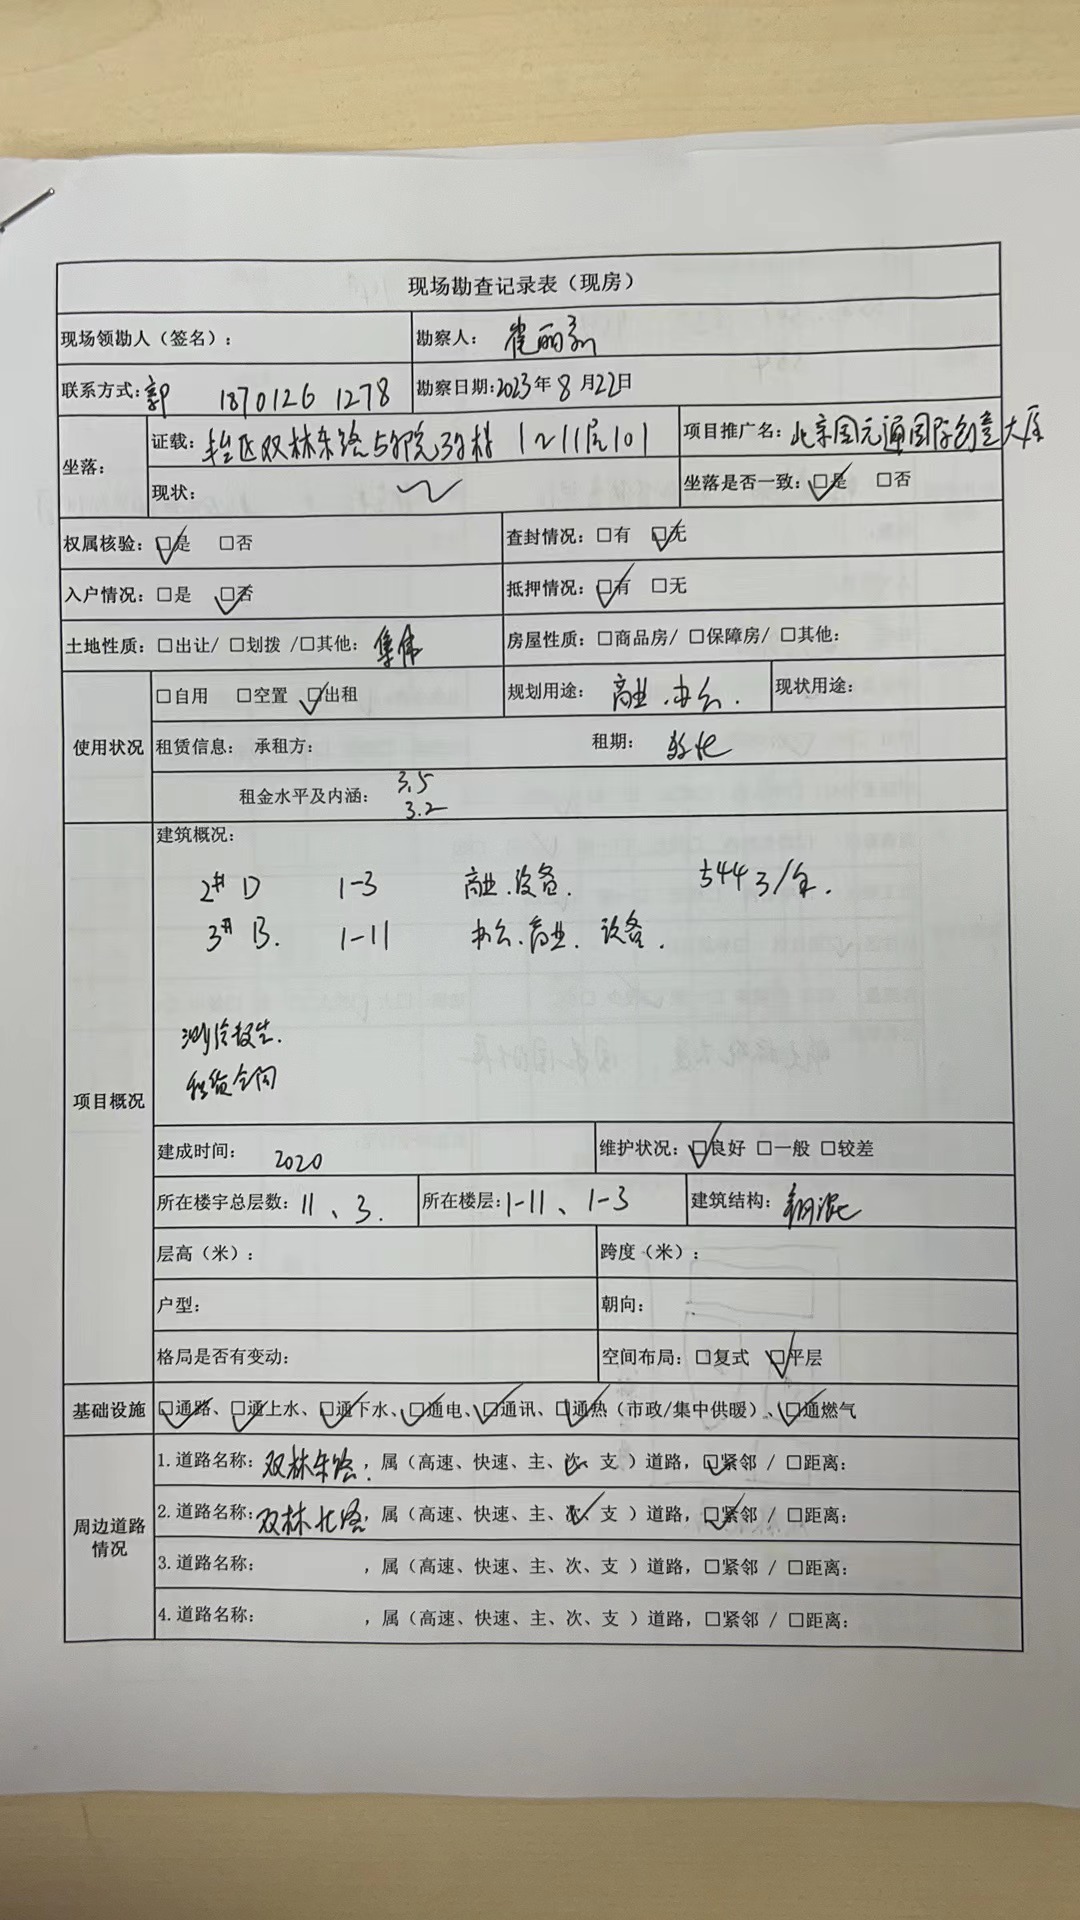 现场勘查记录表（现房）
现场领勘人（签名）： 勘察人： 崔丽新
联系方式：郭 18701261278 勘察日期：2023年8月22日
坐落： 证载：丰台区双林东路5号院3号楼1~11层101 项目推广名：北京国元通国际创意大厦
现状： 坐落是否一致：☑是 □否
权属核验：☑是 □否 查封情况：□有 ☑无
入户情况：□是 ☑否 抵押情况：☑有 □无
土地性质：□出让/ □划拨 /□其他：集体 房屋性质：□商品房/ □保障房/ □其他：
使用状况 □自用 □空置 ☑出租 规划用途： 商业、办公. 现状用途：
租赁信息： 承租方： 租期：
租金水平及内涵： 3.5
3.2
项目概况 建筑概况：
2# D 1-3 商业.设备. 5443/年.
3# B. 1-11 办公.商业. 设备.
测绘报告.
租赁合同
建成时间： 2020 维护状况：☑良好 □一般 □较差
所在楼宇总层数：11、3. 所在楼层：1-11、1-3 建筑结构：钢混
层高（米）： 跨度（米）：
户型： 朝向：
格局是否有变动： 空间布局：□复式 ☑平层
基础设施 ☑通路、☑通上水、☑通下水、☑通电、☑通讯、☑通热（市政/集中供暖）、☑通燃气
周边道路情况 1.道路名称：双林东路，属（高速、快速、主、次、支）道路，☑紧邻 / □距离：
2.道路名称：双林北路，属（高速、快速、主、次、支）道路，☑紧邻 / □距离：
3.道路名称： ，属（高速、快速、主、次、支）道路，□紧邻 / □距离：
4.道路名称： ，属（高速、快速、主、次、支）道路，□紧邻 / □距离：